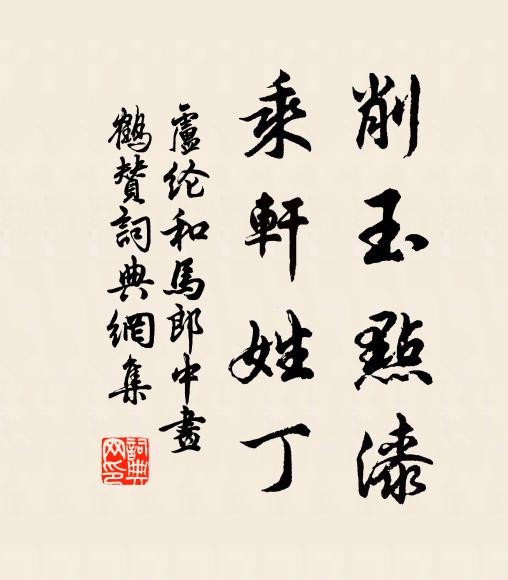 削玉點漆
乘軒姓丁
盧纶和馬郎中畫
鶴賛詞典網集
詞典
网印